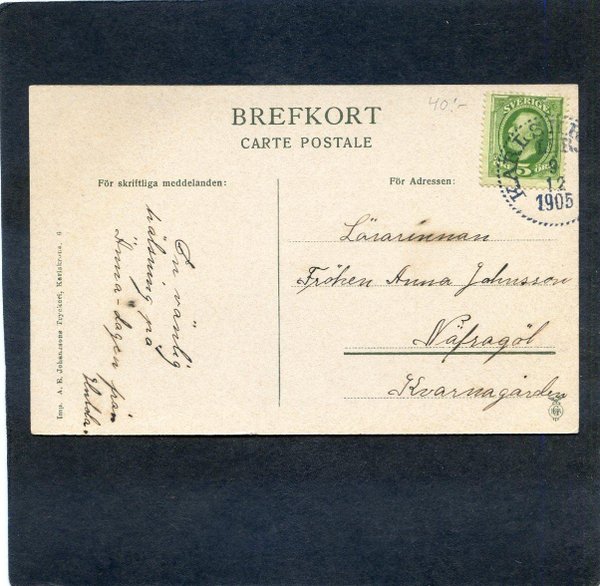 40:-
BREFKORT
CARTE POSTALE
SVERIGE
5 ÖRE
9
12
1905
För skriftliga meddelanden:
För Adressen:
En vänlig
hälsning på
Anna-dagen från
Lärarinnan
Fröken Anna Johnsson
Näfragöl
Kvarnagården
Imp. A. K. Johanssons Tryckeri, Karlskrona. 6